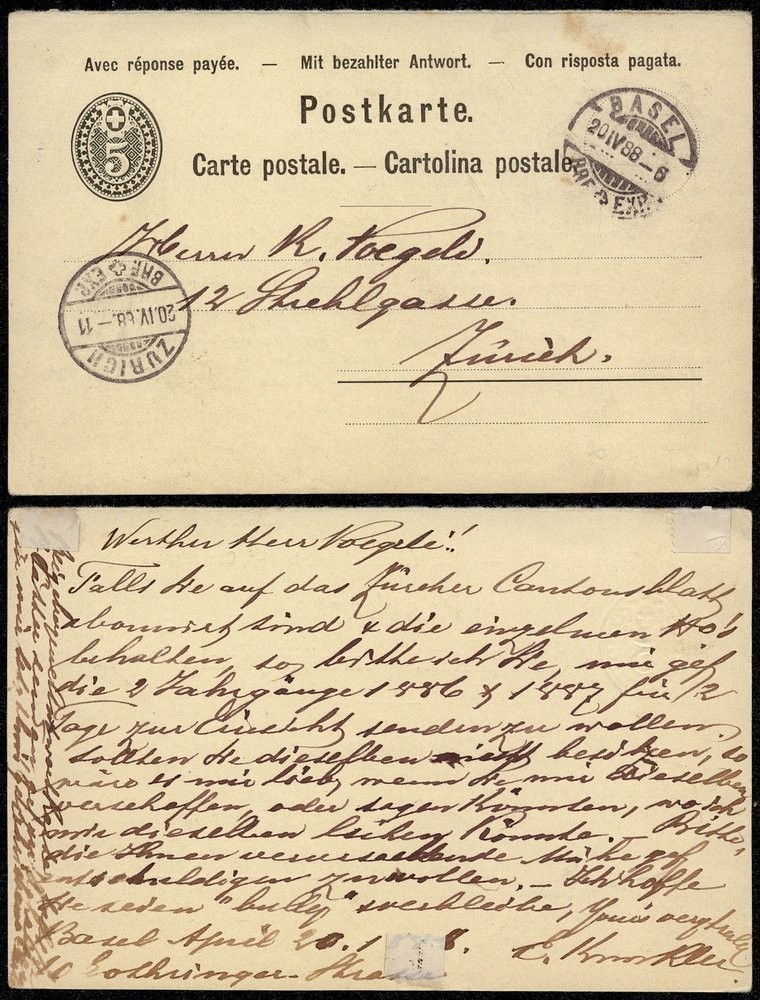 Avec réponse payée. — Mit bezahlter Antwort. — Con risposta pagata.
Postkarte.
Carte postale. — Cartolina postale.
5
BASEL
20 IV 88 – 6
BRF EXP
Herrn K. Voegeli.
12 Strehlgasse.
Zürich.
ZÜRICH
20. IV. 88. – 11
BRF. EXP.
Werther Herr Voegeli!!
Falls Sie auf das Zürcher Cantonsblatt
abonnirt sind & die einzelnen No's
behalten, so bitte ich Sie, mir gef
die 2 Jahrgänge 1886 & 1887 für 2
Tage zur Einsicht senden zu wollen.
Sollten Sie dieselben nicht besitzen, so
wäre es mir lieb, wenn Sie mir dieselben
verschaffen, oder sagen könnten, wo ich
mir dieselben leihen könnte. – Bitte,
die Ihnen verursachende Mühe gef
entschuldigen zu wollen. – Ich hoffe
Sie seien "bully" & verbleibe, Yours very truly
Basel April 20. 1 8.
10 Lothringer-Strasse